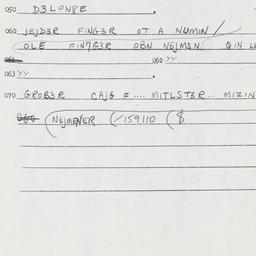 050 D3LON8E
060 JEJD3R FING3R OT A NUMIN/
(OLE FIN7G3R OBN NEJM3N QIN LE
062 YY
063 YY
070 GROB3R CAJ6 F .... MITLST3R... MIZIN
(NEJMENER (/159110 ($